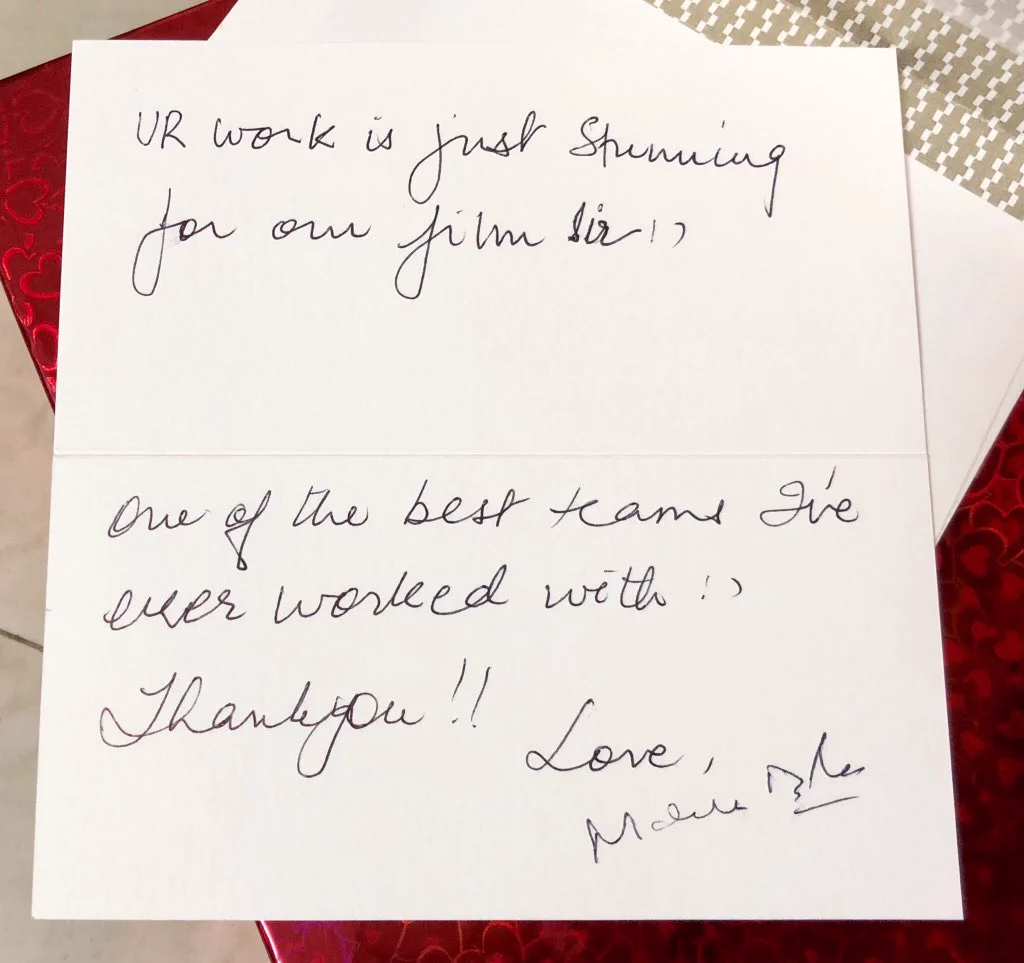 UR work is just Stunning
for our film Sir :)
One of the best teams I've
ever worked with :)
Thankyou !!
Love,